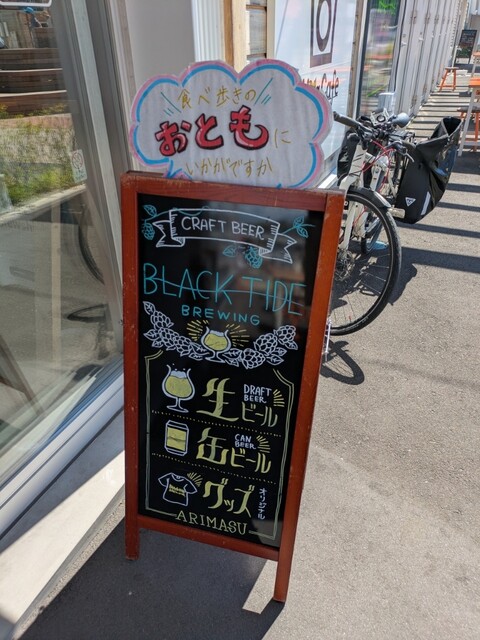 食べ歩きの
おともに
いかがですか
CRAFT BEER
BLACK TIDE
BREWING
生ビール
DRAFT
BEER
缶ビール
CAN
BEER
グッズ
オリジナル
ARIMASU